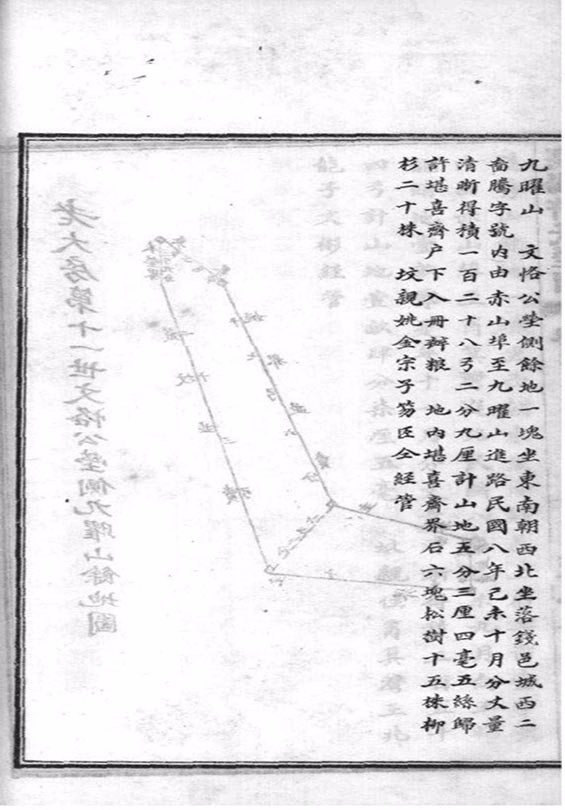 九曜山 文恪公塋側餘地一塊坐東南朝西北坐落錢邑城西二
啚騰字號内由赤山埠至九曜山進路民國八年己未十月分丈量
清晰得積一百二十八弓二分九厘計山地五分三厘四毫五絲歸
許堪喜齋户下入冊辦粮 地内堪喜齋界石六塊松樹十五株柳
杉二十株 坟親姚金宗子笏臣仝經管
老大房第十一世文恪公塋側九曜山餘地圖